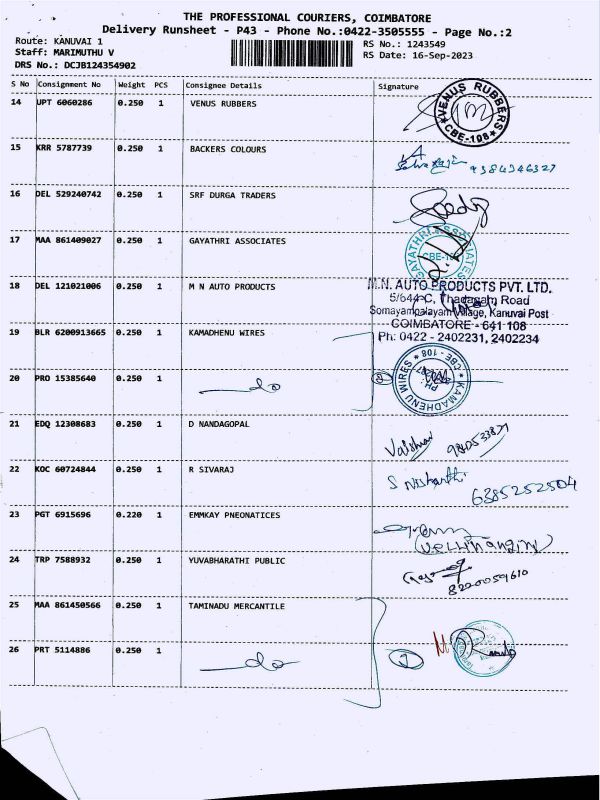 THE PROFESSIONAL COURIERS, COIMBATORE
Delivery Runsheet - P43 - Phone No.:0422-3505555 - Page No.:2
Route: KANUVAI 1 RS No.: 1243549
Staff: MARIMUTHU V RS Date: 16-Sep-2023
DRS No.: DCJB124354902
S No Consignment No Weight PCS Consignee Details Signature
14 UPT 6060286 0.250 1 VENUS RUBBERS
VENUS RUBBERS
CBE-108
15 KRR 5787739 0.250 1 BACKERS COLOURS
9384346327
16 DEL 529240742 0.250 1 SRF DURGA TRADERS
17 MAA 861409027 0.250 1 GAYATHRI ASSOCIATES
GAYATHRI ASSOCIATES
18 DEL 121021006 0.250 1 M N AUTO PRODUCTS
M.N. AUTO PRODUCTS PVT. LTD.
5/644-C, Thadagam Road
Somayampalayam Village, Kanuvai Post
COIMBATORE - 641 108
Ph: 0422 - 2402231, 2402234
19 BLR 6200913665 0.250 1 KAMADHENU WIRES
KAMADHENU WIRES
CBE - 108
20 PRO 15385640 0.250 1 do 2
21 EDQ 12308683 0.250 1 D NANDAGOPAL
22 KOC 60724844 0.250 1 R SIVARAJ
S Nishanthi
6385252504
23 PGT 6915696 0.220 1 EMMKAY PNEONATICES
24 TRP 7588932 0.250 1 YUVABHARATHI PUBLIC
8220059610
25 MAA 861450566 0.250 1 TAMINADU MERCANTILE
26 PRT 5114886 0.250 1 do